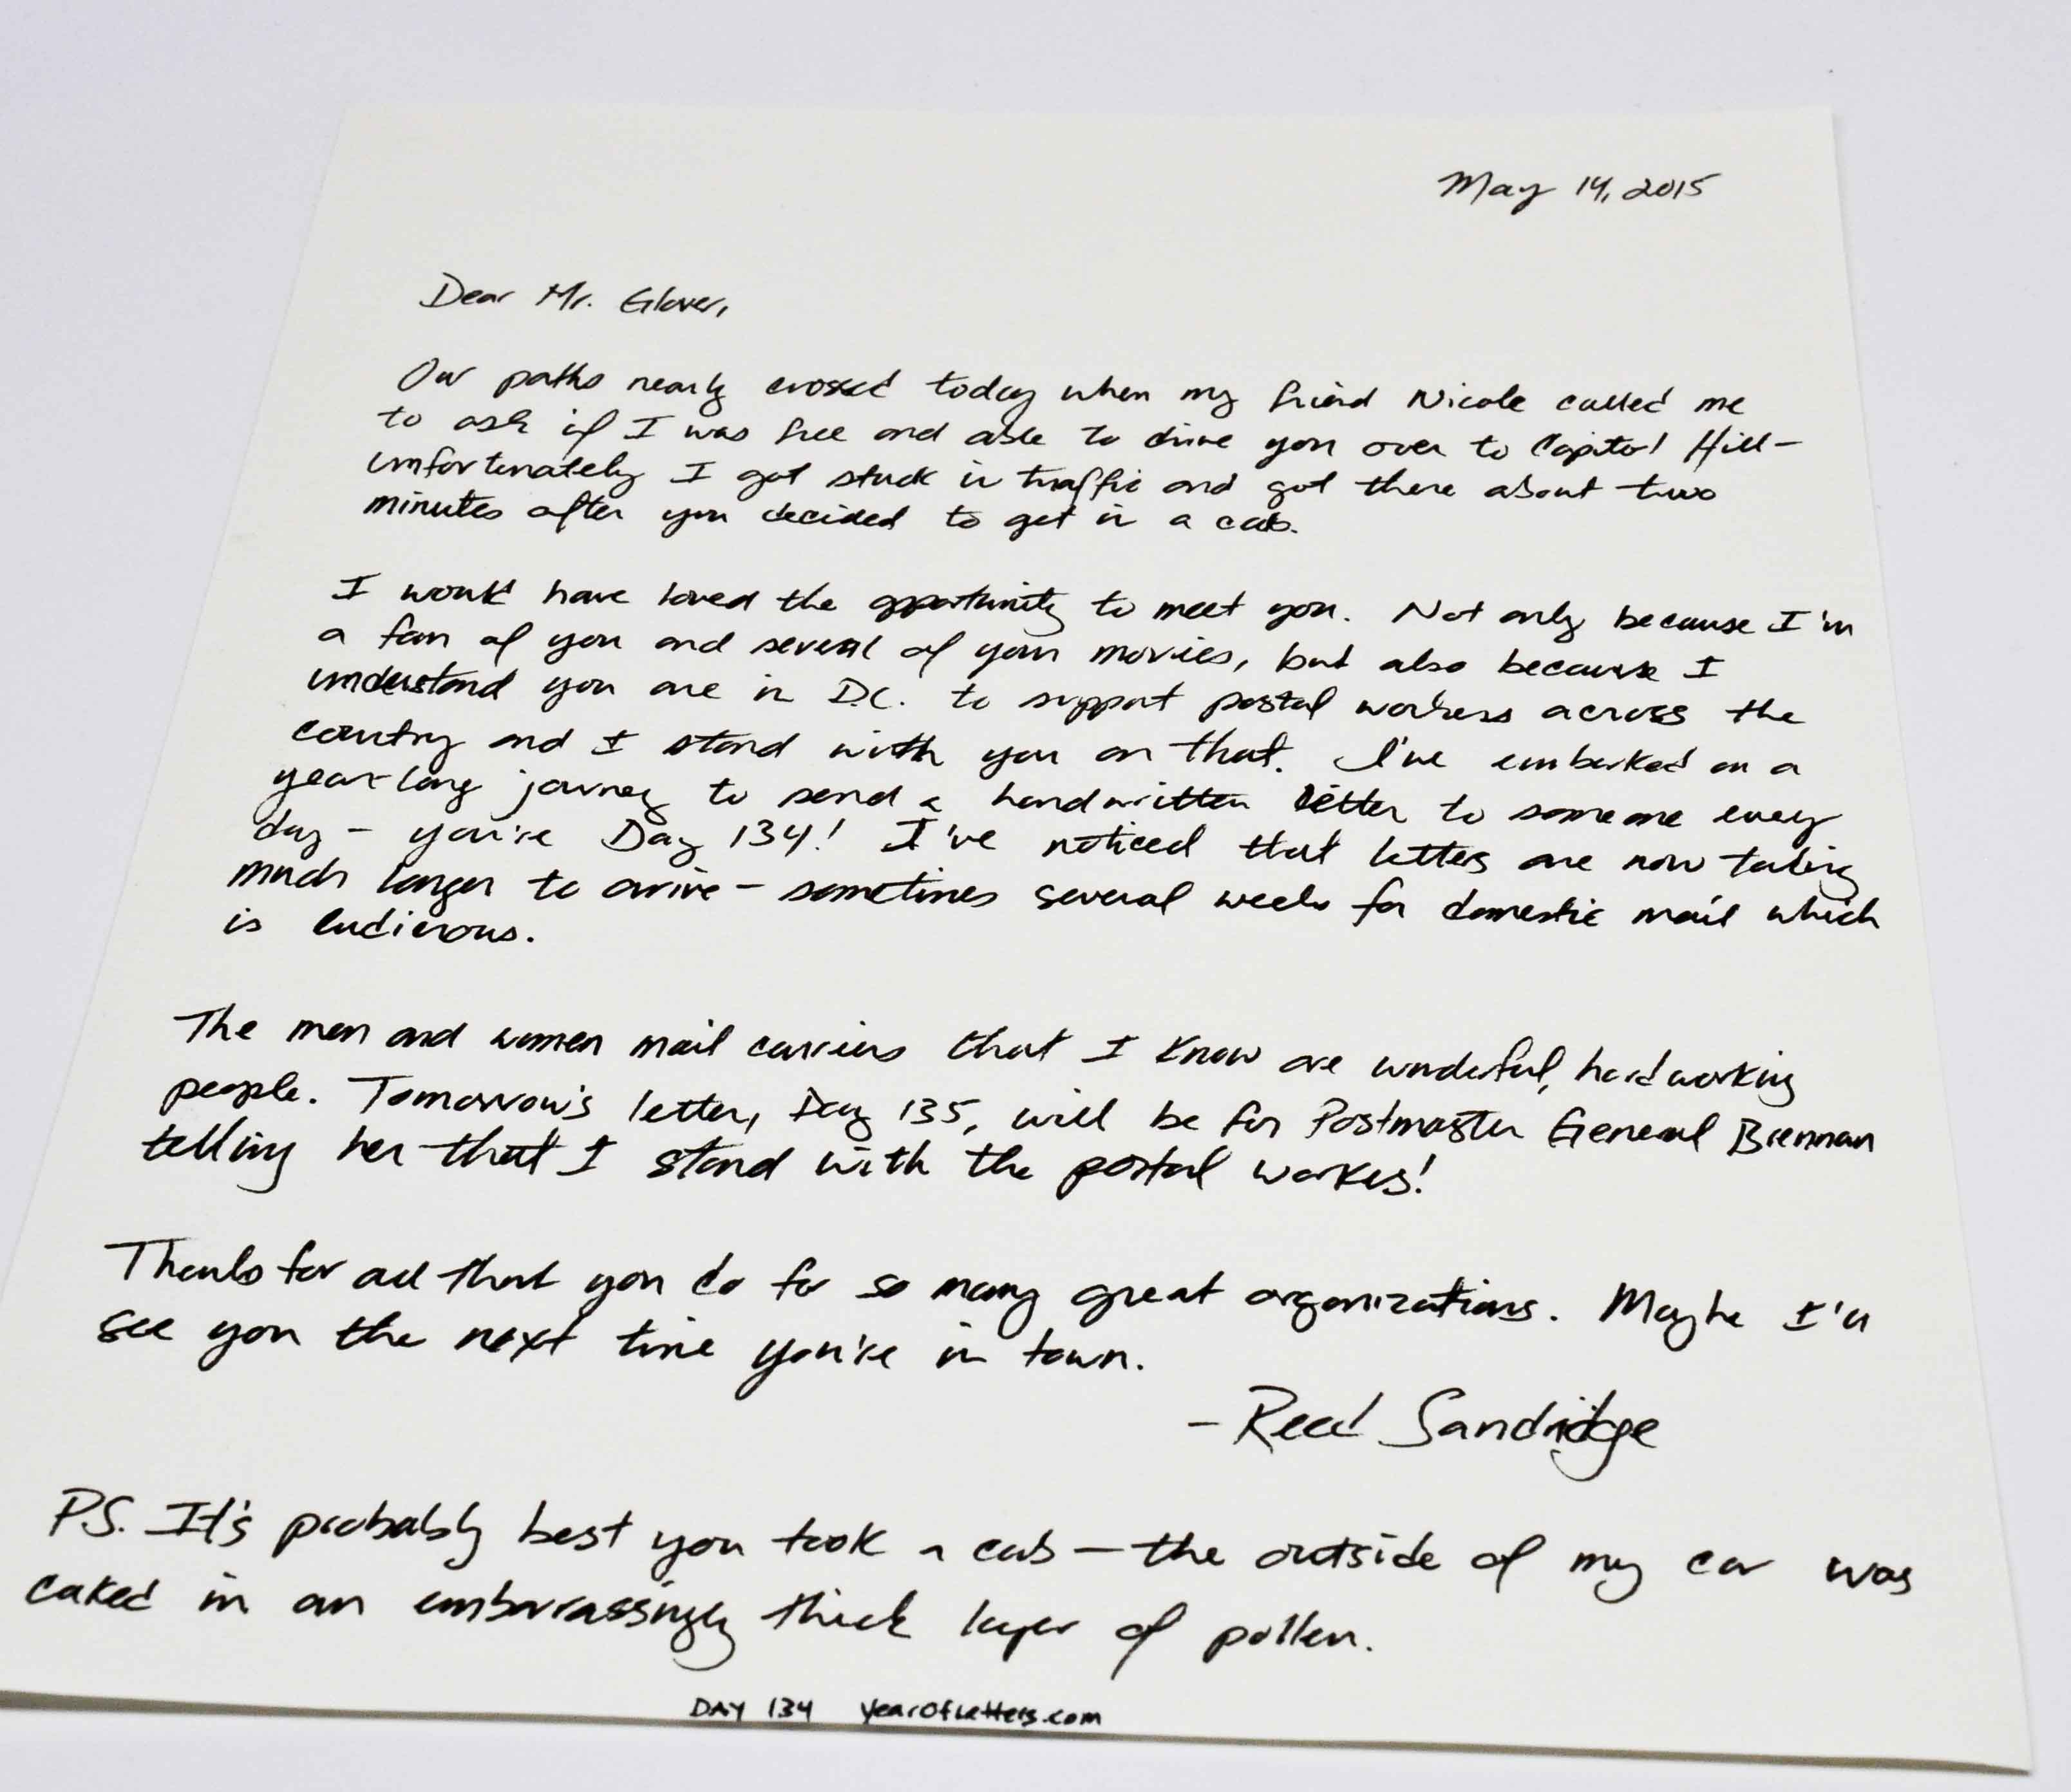 May 14, 2015
Dear Mr. Glover,
Our paths nearly crossed today when my friend Nicole called me
to ask if I was free and able to drive you over to Capitol Hill –
unfortunately I got stuck in traffic and got there about two
minutes after you decided to get in a cab.
I would have loved the opportunity to meet you. Not only because I'm
a fan of you and several of your movies, but also because I
understand you are in D.C. to support postal workers across the
country and I stand with you on that. I've embarked on a
year-long journey to send a handwritten letter to someone every
day – you're Day 134! I've noticed that letters are now taking
much longer to arrive – sometimes several weeks for domestic mail which
is ludicrous.
The men and women mail carriers that I know are wonderful, hardworking
people. Tomorrow's letter, Day 135, will be for Postmaster General Brennan
telling her that I stand with the postal workers!
Thanks for all that you do for so many great organizations. Maybe I'll
see you the next time you're in town.
– Reed Sandridge
P.S. It's probably best you took a cab – the outside of my car was
caked in an embarrassingly thick layer of pollen.
DAY 134 YearOfLetters.com